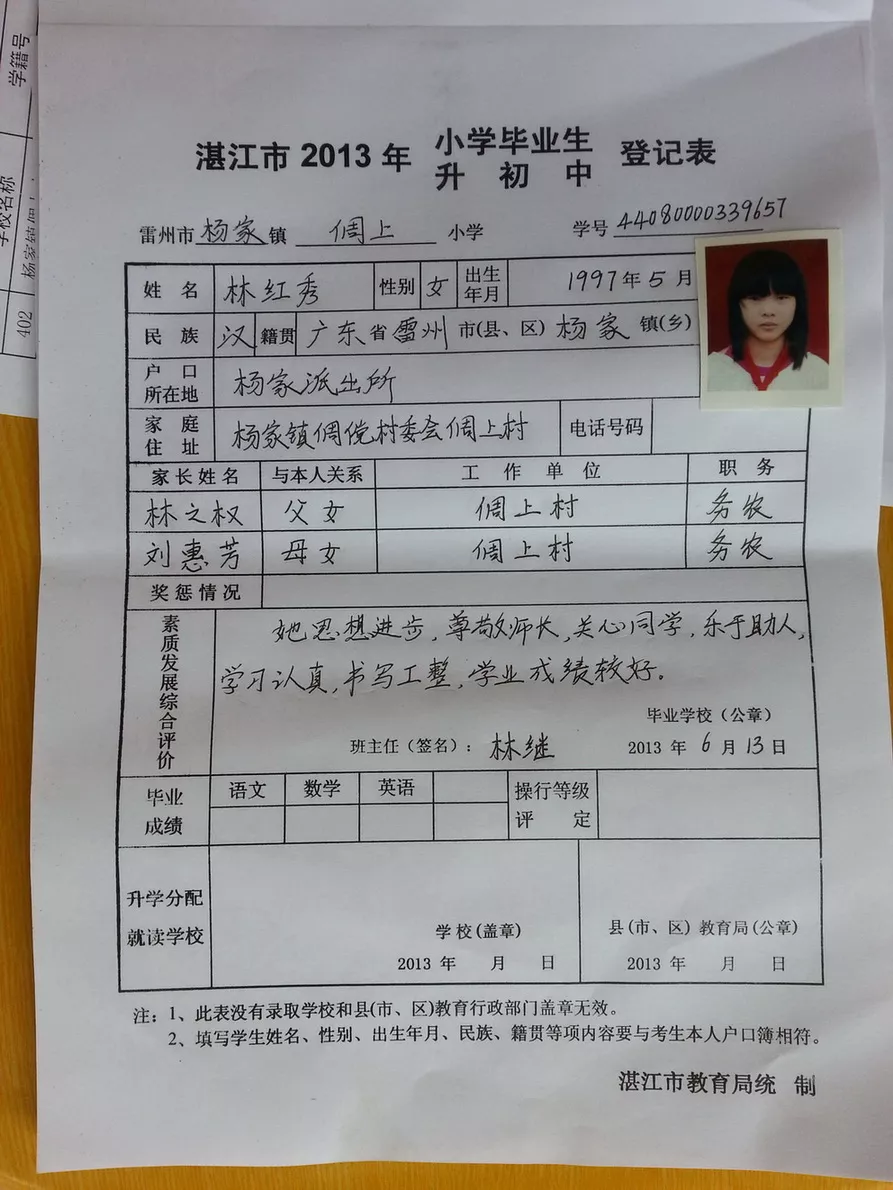 学籍号
学校名称
402
湛江市 2013 年 小学毕业生 登记表
升初中
雷州市 杨家 镇 倜上 小学 学号 44080000339657
姓名 林红秀 性别 女 出生年月 1997年5月
民族 汉 籍贯 广东省雷州市(县、区)杨家镇(乡)
户口所在地 杨家派出所
家庭住址 杨家镇倜傥村委会倜上村 电话号码
家长姓名 与本人关系 工作单位 职务
林之权 父女 倜上村 务农
刘惠芳 母女 倜上村 务农
奖惩情况
素质发展综合评价
她思想进步,尊敬师长,关心同学,乐于助人,
学习认真,书写工整,学业成绩较好。
毕业学校（公章）
班主任（签名）: 林继 2013 年 6 月 13 日
毕业成绩 语文 数学 英语 操行等级评定
升学分配就读学校
学校(盖章) 县(市、区)教育局(公章)
2013 年 月 日 2013 年 月 日
注：1、此表没有录取学校和县(市、区)教育行政部门盖章无效。
2、填写学生姓名、性别、出生年月、民族、籍贯等项内容要与考生本人户口簿相符。
湛江市教育局统 制